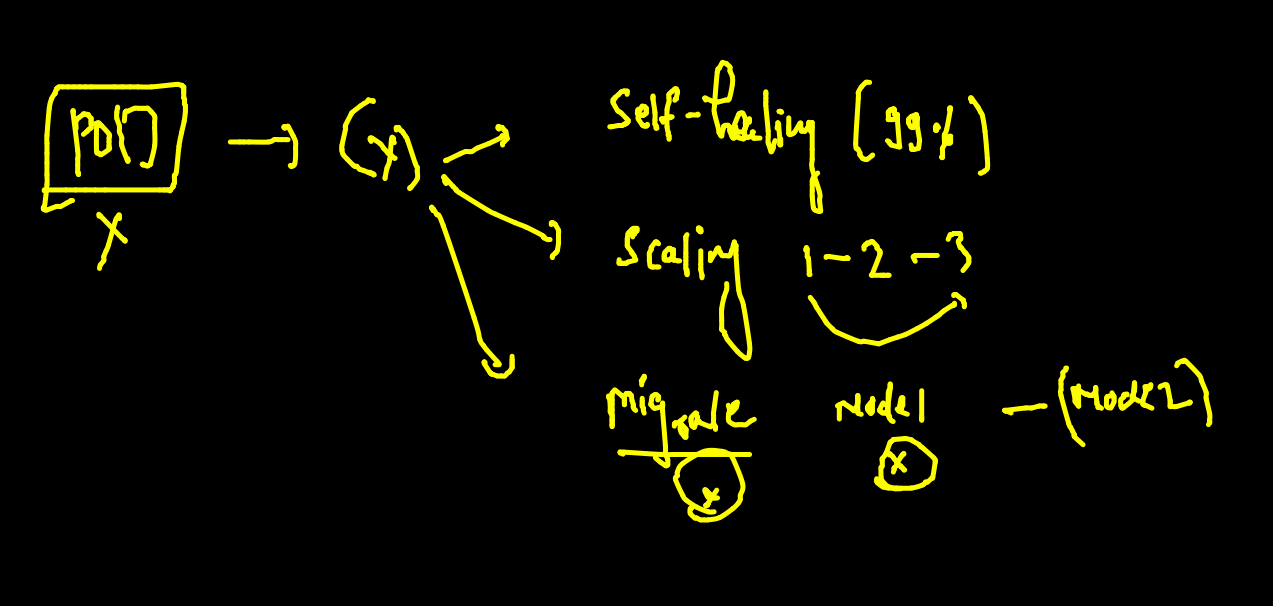 POD → (X) → Self-healing (99%)
X
→ Scaling 1 - 2 - 3
→ Migrate Node1 - (Node2)
X X